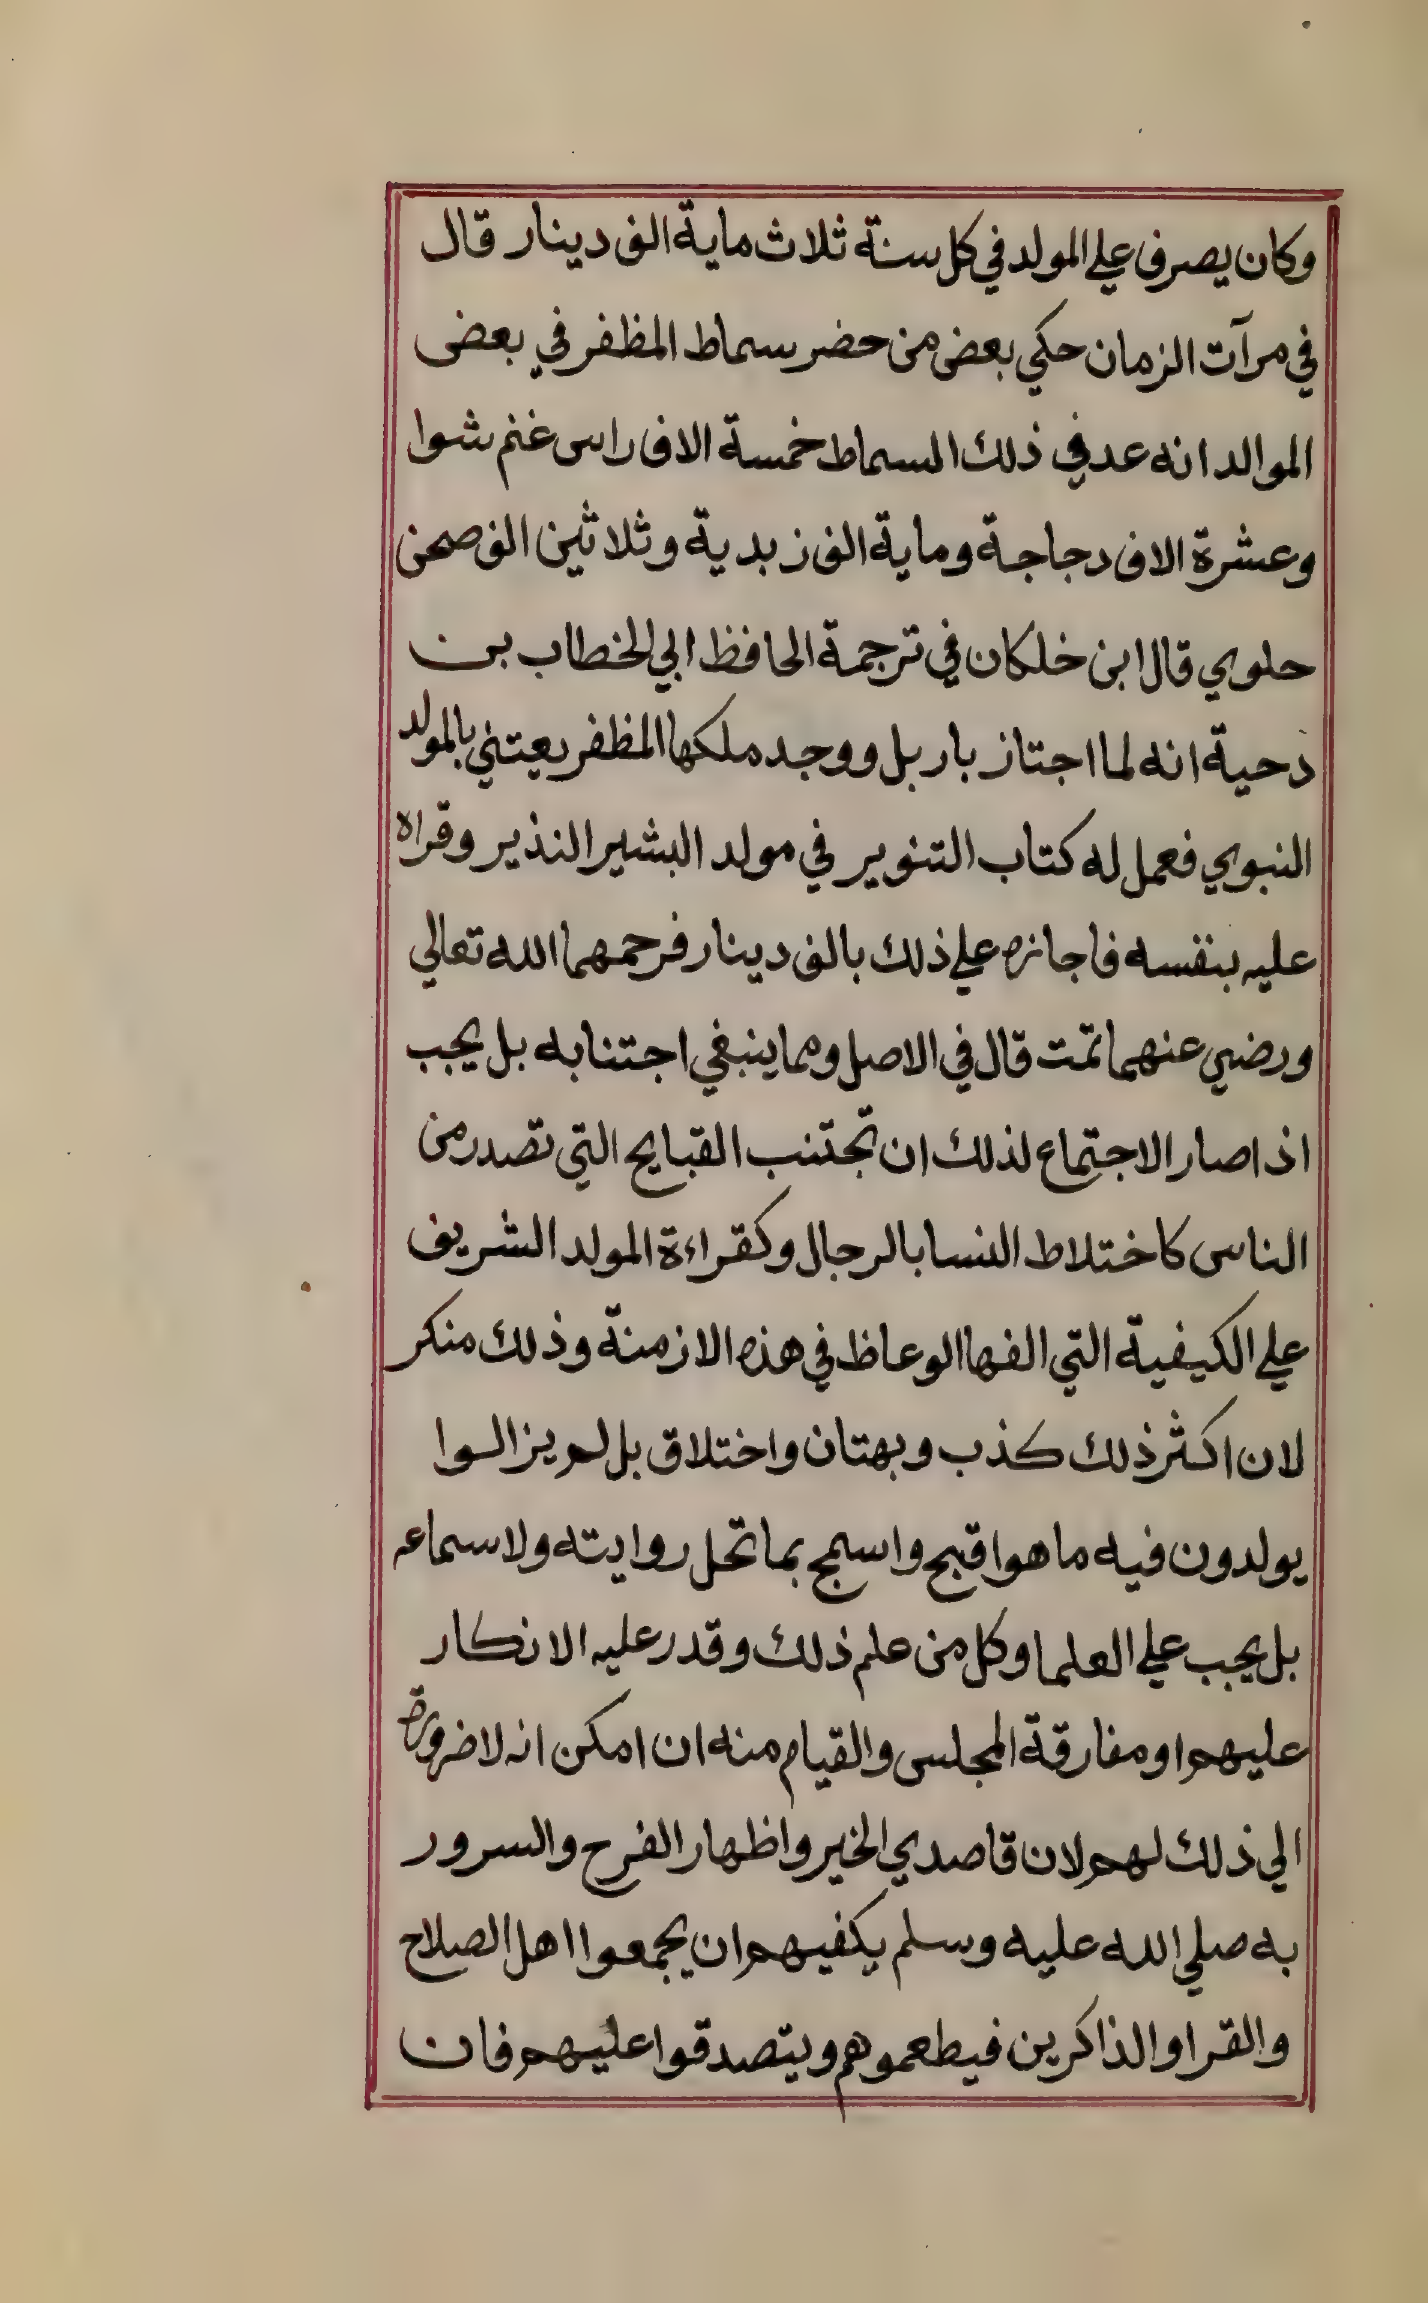 وكان يصرف علي المولد في كل سنة ثلاث ماية الف دينار قال
في مرآت الزمان حكي بعض من حضر سماط المظفر في بعض
الموالد انه عد في ذلك السماط خمسة الاف راس غنم شوا
وعشرة الاف دجاجة وماية الف زبدية وثلاثين الف صحن
حلوي قال ابن خلكان في ترجمة الحافظ ابي الخطاب بن
دحية انه لما اجتاز باربل ووجد ملكها المظفر يعتني بالمولد
النبوي فعمل له كتاب التنوير في مولد البشير النذير وقراه
عليه بنفسه فاجازه علي ذلك بالف دينار فرحمهما الله تعالي
ورضي عنهما تمت قال في الاصل ومما ينبغي اجتنابه بل يجب
اذا صار الاجتماع لذلك ان تجتنب القبايح التي تصدر من
الناس كاختلاط النسا بالرجال وكقراءة المولد الشريف
علي الكيفية التي الفها الوعاظ في هذه الازمنة وذلك منكر
لان اكثر ذلك كذب وبهتان واختلاق بل لم يزالوا
يولدون فيه ما هو اقبح واسمج بما تحل روايته ولا سماعه
بل يجب علي العلما وكل من علم ذلك وقدر عليه الانكار
عليهم او مفارقة المجلس والقيام منه ان امكن انه لا ضرورة
الي ذلك لهم لان قاصدي الخير واظهار الفرح والسرور
به صلي الله عليه وسلم يكفيهم ان يجمعوا اهل الصلاح
والقرا والذاكرين فيطعموهم ويتصدقوا عليهم فان